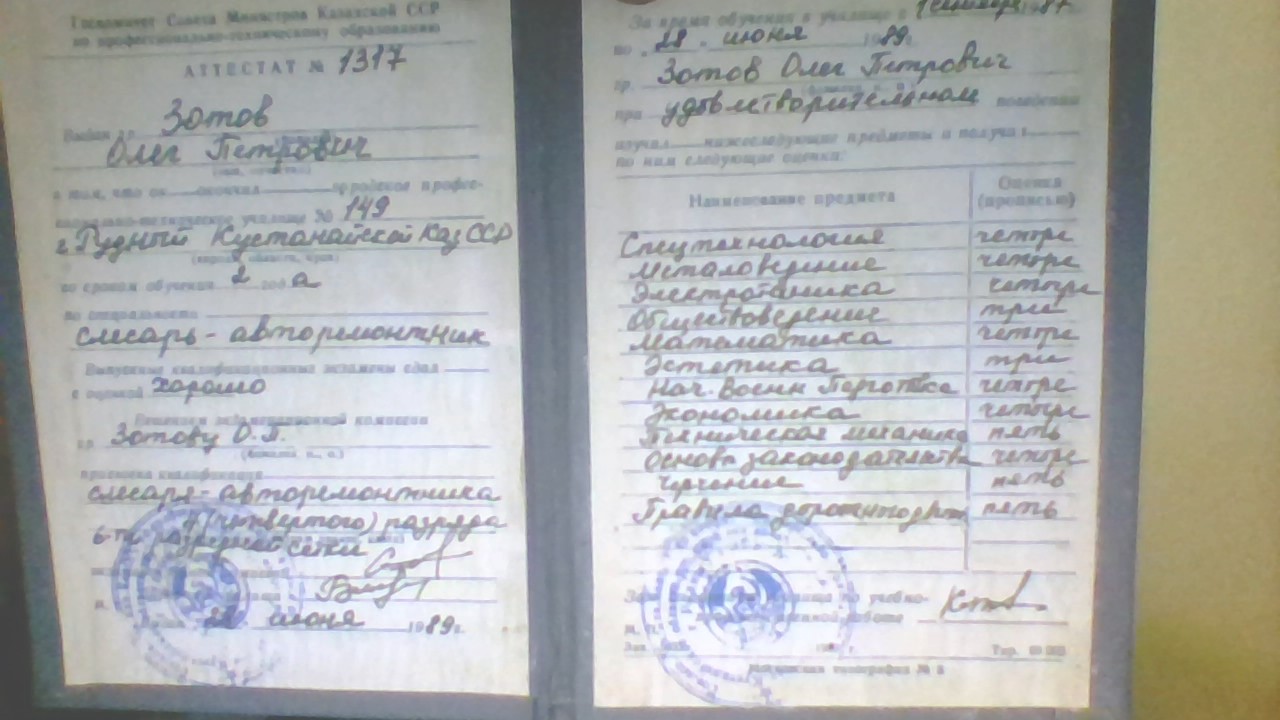 Госкомитет Совета Министров Казахской ССР
по профессионально-техническому образованию
АТТЕСТАТ № 1317
Выдан гр. Зотов
Олег Петрович
в том, что он окончил городское профес-
сионально-техническое училище № 149
г. Рудный Кустанайской Каз ССР
(города, области, края)
со сроком обучения 2 года
по специальности
слесарь-авторемонтник
Выпускные квалификационные экзамены сдал
с оценкой хорошо
Решением экзаменационной комиссии
гр. Зотову О.П.
присвоена квалификация
слесаря-авторемонтника
4 (четвертого) разряда
6-ти разрядной сетки
М.
28 июня 1989 г.
За время обучения в училище с 1 сентября 1987
по 28 июня 1989 г.
гр. Зотов Олег Петрович
при удовлетворительном поведении
изучал нижеследующие предметы и получил
по ним следующие оценки:
Наименование предмета Оценка (прописью)
Спецтехнология четыре
Металоведение четыре
Электротехника четыре
Обществоведение три
Математика четыре
Эстетика три
Нач. Военн Подготовка четыре
Экономика четыре
Техническая механика пять
Основы законодательства четыре
Черчение пять
Правила дорожн движ пять
по учебно-
работе
М. П.
Зак. Тир.
типография №